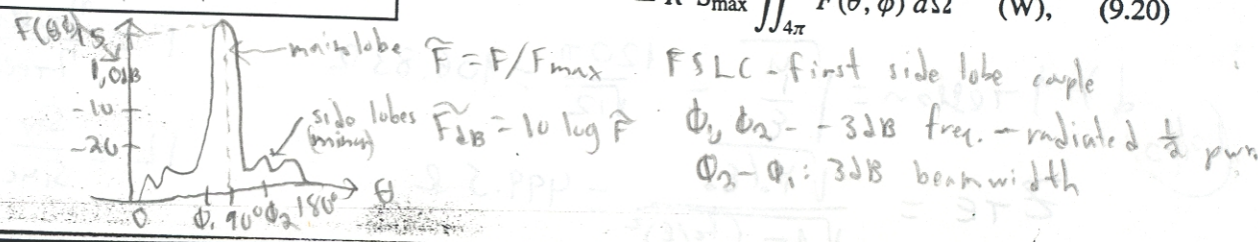 = R² Smax ∬4π F(θ, φ) dΩ (W), (9.20)
F(θ,φ)
1, 0dB
-10
-20
main lobe
side lobes
(minor)
0 Φ₁ 90° Φ₂ 180° θ
F̃ = F/Fmax
F̃dB = 10 log F̃
FSLC - first side lobe couple
Φ₁, Φ₂ - -3dB freq. - radiated ½ pwr.
Φ₂-Φ₁: 3dB beamwidth